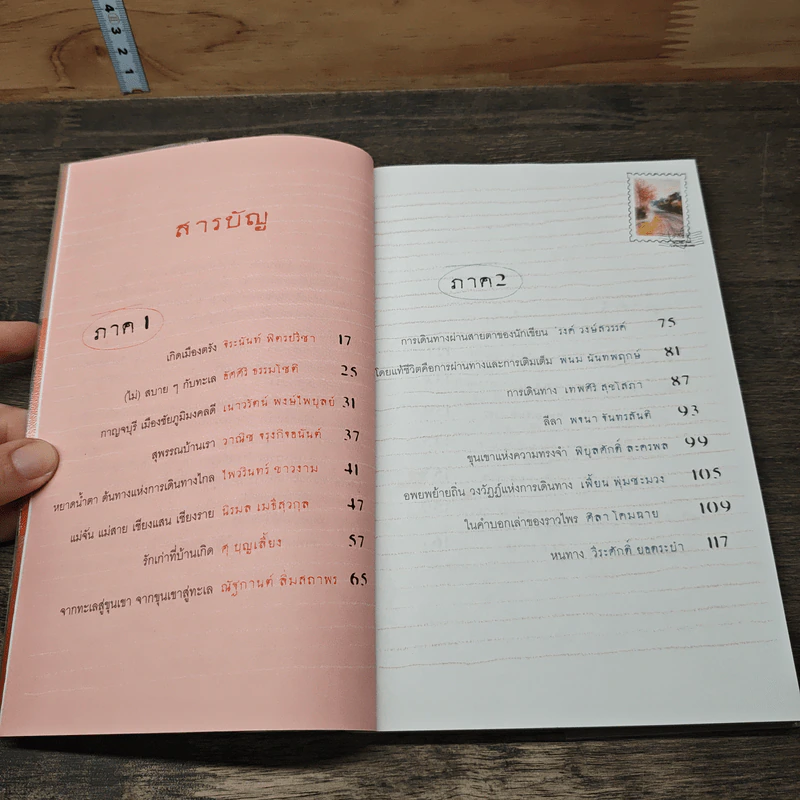 สารบัญ
ภาค 1
เกิดเมืองตรัง จิระนันท์ พิตรปรีชา 17
(ไม่) สบาย ๆ กับทะเล อัศศิริ ธรรมโชติ 25
กาญจบุรี เมืองชัยภูมิมงคลดี เนาวรัตน์ พงษ์ไพบูลย์ 31
สุพรรณบ้านเรา วาณิช จรุงกิจอนันต์ 37
หยาดน้ำตา ต้นทางแห่งการเดินทางไกล ไพวรินทร์ ขาวงาม 41
แม่จัน แม่สาย เชียงแสน เชียงราย นิรมล เมธีสุวกุล 47
รักเก่าที่บ้านเกิด ศุ บุญเลี้ยง 57
จากทะเลสู่ขุนเขา จากขุนเขาสู่ทะเล ณัฐกานต์ ลิ่มสถาพร 65
ภาค 2
การเดินทางผ่านสายตาของนักเขียน 'รงค์ วงษ์สวรรค์ 75
โดยแท้ชีวิตคือการผ่านทางและการเติมเต็ม พนม นันทพฤกษ์ 81
การเดินทาง เทพศิริ สุขโสภา 87
ลีลา พจนา จันทรสันติ 93
ขุนเขาแห่งความทรงจำ พิบูลศักดิ์ ละครพล 99
อพยพย้ายถิ่น วงวัฏฏ์แห่งการเดินทาง เพี้ยน พุ่มชะมวง 105
ในคำบอกเล่าของราวไพร ศิลา โคมฉาย 109
หนทาง วีระศักดิ์ ยอดระบำ 117
4
3
2
1